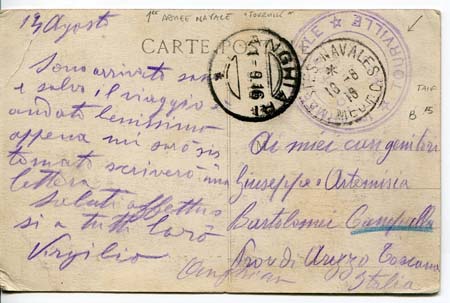 13 Agosto
1ère ARMEE NAVALE "TOURVILLE"
CARTE POSTALE
Sono arrivato sano
e salvo, il viaggio è
andato benissimo
appena mi sarò sis
temato scriverò una
lettera
Saluti affettuo
si a tutti
Virgilio
ANGHIARI
9.16
TOURVILLE
NAVALES
10 - 8
16
B
15
Ai miei cari genitori
Giuseppe e Artemisia
Bartolomei
Prov di Arezzo Toscana
Italia
Anghiari